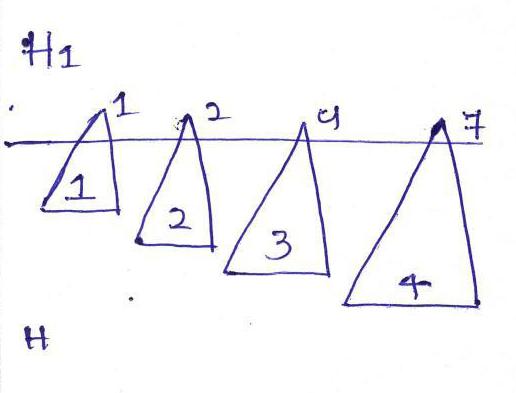 H1
1 2 4 7
1
2
3
4
H